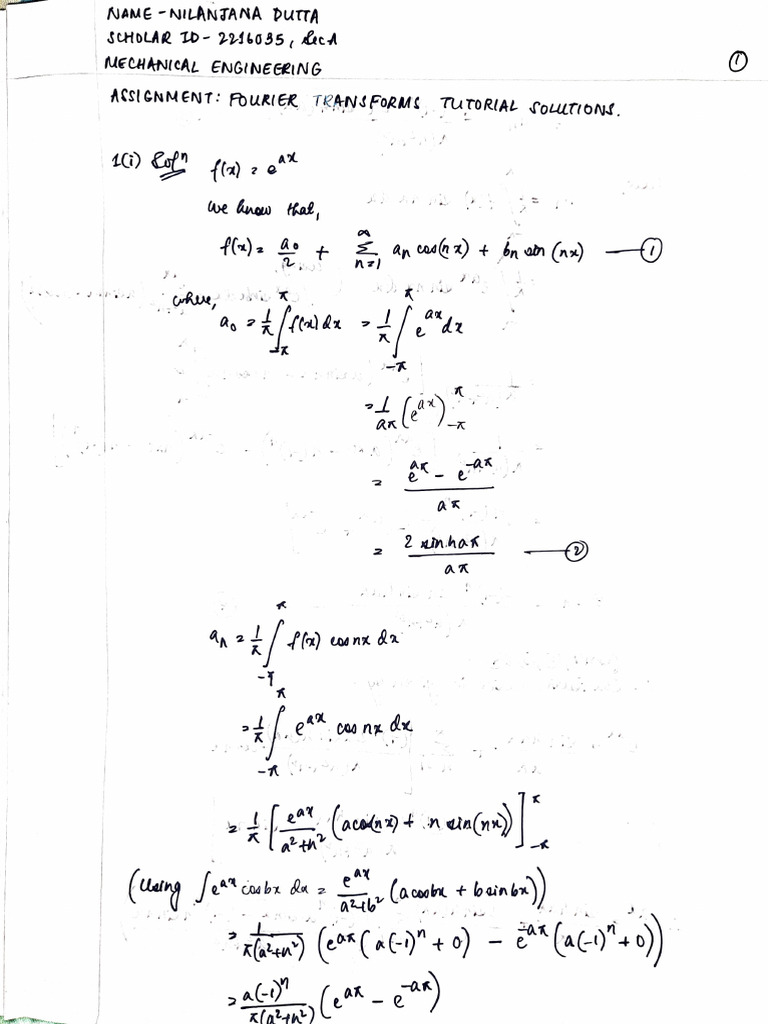 NAME - NILANJANA DUTTA
SCHOLAR ID - 2216035, Sec A
①
MECHANICAL ENGINEERING
ASSIGNMENT: FOURIER TRANSFORMS TUTORIAL SOLUTIONS.
1(i) Solⁿ f(x) = e^{ax}
We know that,
f(x) = a₀/2 + ∑_{n=1}^{∞} aₙ cos(nx) + bₙ sin(nx) —①
where,
a₀ = 1/π ∫_{-π}^{π} f(x) dx = 1/π ∫_{-π}^{π} e^{ax} dx
= 1/aπ (e^{ax})_{-π}^{π}
= (e^{aπ} - e^{-aπ})/aπ
= 2 sinh aπ/aπ —②
aₙ = 1/π ∫_{-π}^{π} f(x) cos nx dx
= 1/π ∫_{-π}^{π} e^{ax} cos nx dx
= 1/π [e^{ax}/(a²+n²) (a cos(nx) + n sin(nx))]_{-π}^{π}
(Using ∫e^{ax} cos bx dx = e^{ax}/(a²+b²) (a cos bx + b sin bx))
= 1/π(a²+n²) (e^{aπ} (a(-1)ⁿ + 0) - e^{-aπ} (a(-1)ⁿ + 0))
= a(-1)ⁿ/π(a²+n²) (e^{aπ} - e^{-aπ})